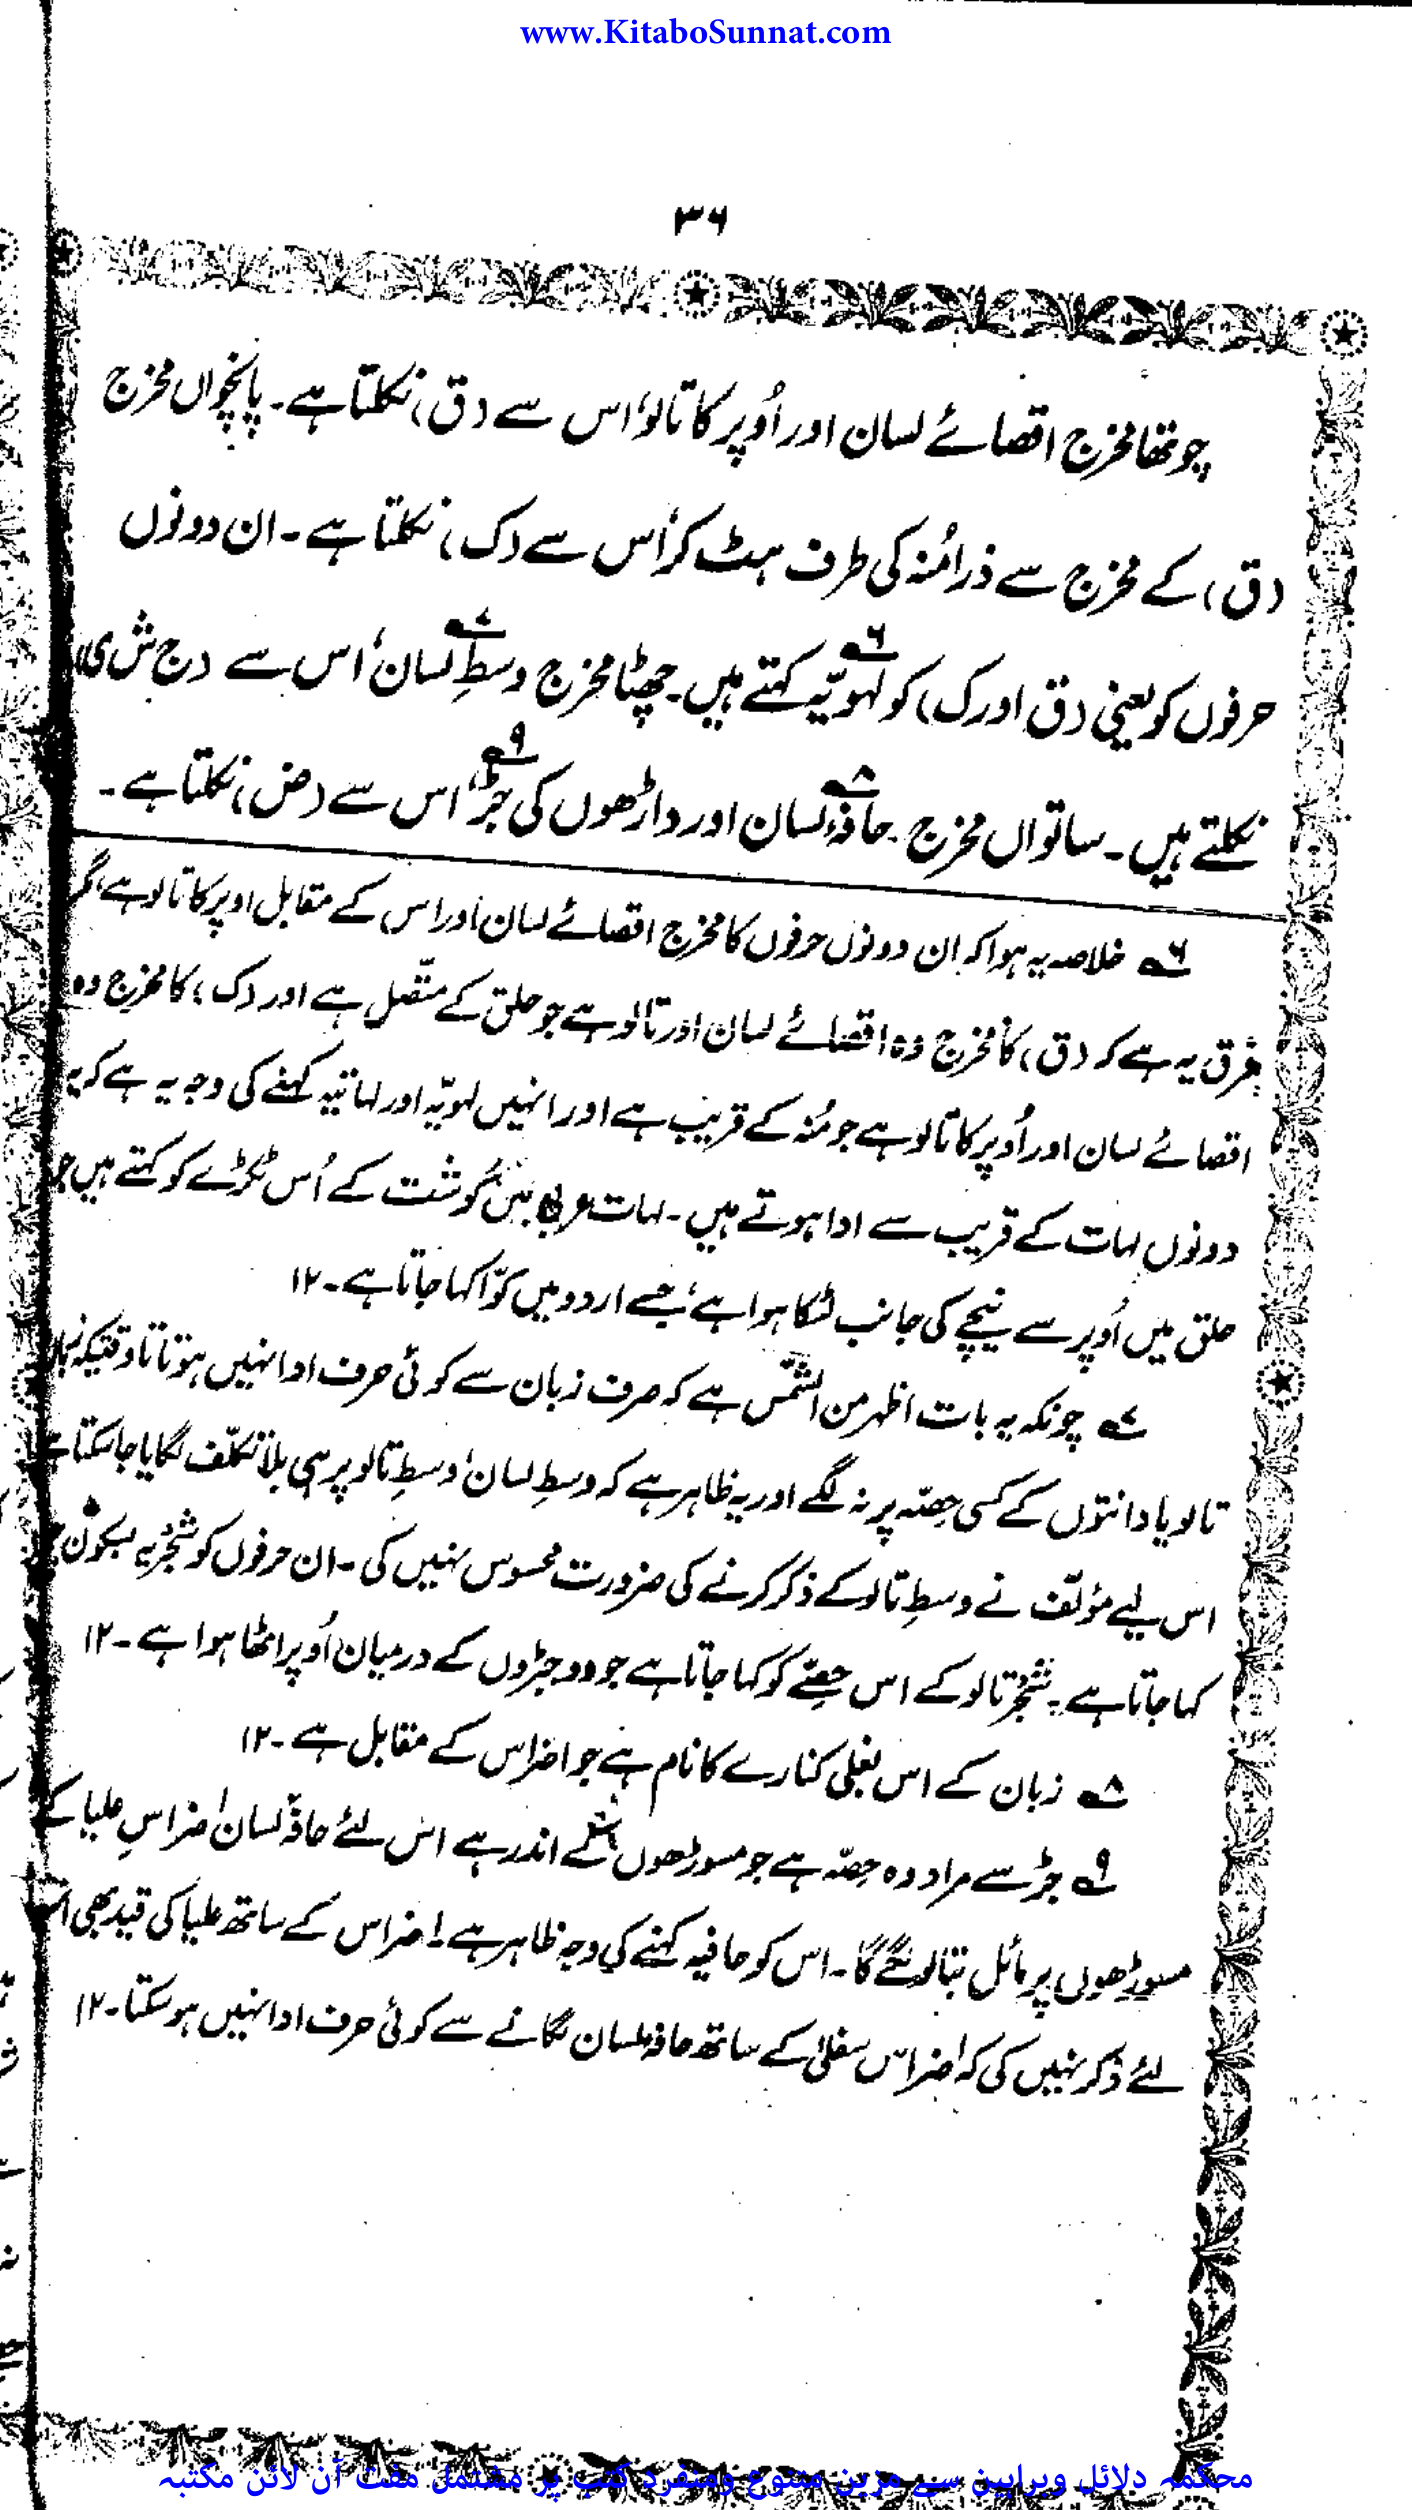 www.KitaboSunnat.com
۳۶
چوتھا مخرج اقصائے لسان اور اُوپر کا تالو، اس سے (ق) نکلتا ہے۔ پانچواں مخرج
(ق) کے مخرج سے ذرا مُنہ کی طرف ہٹ کر، اُس سے (ک) نکلتا ہے۔ ان دونوں
حرفوں کو یعنی (ق اور ک) کو لہویّہ ۶؎ کہتے ہیں۔ چھٹا مخرج وسطِ ۷؎ لسان، اس سے (ج ش ی)
نکلتے ہیں۔ ساتواں مخرج حافۂ ۸؎ لسان اور داڑھوں کی جڑ ۹؎، اس سے (ض) نکلتا ہے۔
۶؎ خلاصہ یہ ہوا کہ ان دونوں حرفوں کا مخرج اقصائے لسان اور اس کے مقابل اوپر کا تالو ہے مگر
فرق یہ ہے کہ (ق) کا مخرج وہ اقصائے لسان اور تالو ہے جو حلق کے متّصل ہے اور (ک) کا مخرج وہ
اقصائے لسان اور اُوپر کا تالو ہے جو مُنہ کے قریب ہے اور انہیں لہویّہ اور لہاتیہ کہنے کی وجہ یہ ہے کہ یہ
دونوں لہات کے قریب سے ادا ہوتے ہیں۔ لہات عربی میں گوشت کے اُس ٹکڑے کو کہتے ہیں جو
حلق میں اُوپر سے نیچے کی جانب لٹکا ہوا ہے، جسے اردو میں کوّا کہا جاتا ہے۔ ۱۲
۷؎ چونکہ یہ بات اظہر من الشمس ہے کہ صرف زبان سے کوئی حرف ادا نہیں ہوتا تاوقتیکہ زبان
تالو یا دانتوں کے کسی حصّہ پر نہ لگے اور یہ ظاہر ہے کہ وسطِ لسان، وسطِ تالو پر ہی بلا تکلّف لگایا جاسکتا ہے
اس لیے مؤلّف نے وسطِ تالو کے ذکر کرنے کی ضرورت محسوس نہیں کی۔ ان حرفوں کو شجریہ بسکون
کہا جاتا ہے۔ شجر تالو کے اس حصّے کو کہا جاتا ہے جو دو جبڑوں کے درمیان اُوپر اٹھا ہوا ہے۔ ۱۲
۸؎ زبان کے اس بغلی کنارے کا نام ہے جو اضراس کے مقابل ہے۔ ۱۲
۹؎ جڑ سے مراد وہ حصّہ ہے جو مسوڑھوں کے اندر ہے اس لئے حافۂ لسان اضراسِ علیا کے
مسوڑھوں پر مائل بتالو لگے گا۔ اس کو حافیہ کہنے کی وجہ ظاہر ہے! اضراس کے ساتھ علیا کی قید بھی اس
لئے ذکر نہیں کی کہ اضراس سفلیٰ کے ساتھ حافۂ لسان لگانے سے کوئی حرف ادا نہیں ہوسکتا۔ ۱۲
محکمہ دلائل وبراہین سے مزین متنوع ومنفرد کتب پر مشتمل مفت آن لائن مکتبہ